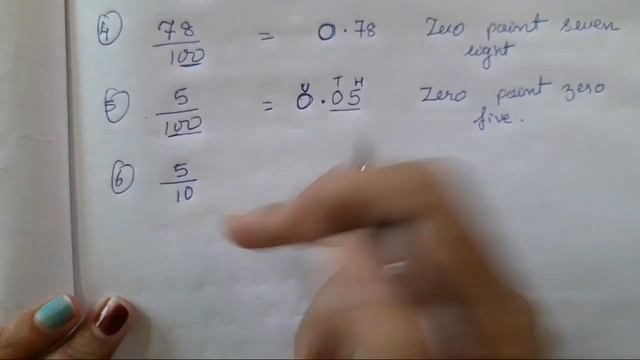 ④ 78/100 = 0.78 Zero point seven eight
⑤ 5/100 = 0.05 U T H Zero point zero five.
⑥ 5/10